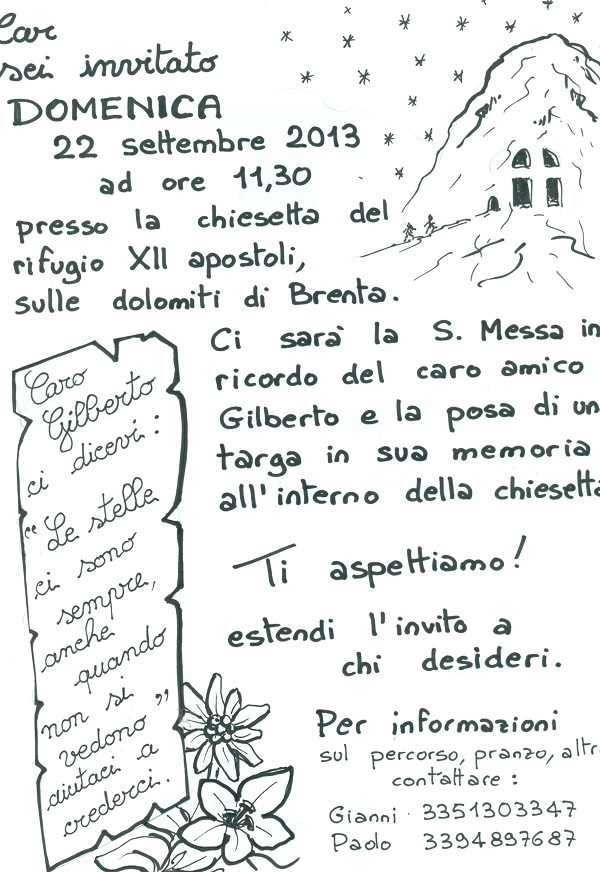 Car
sei invitato
DOMENICA
22 settembre 2013
ad ore 11,30
presso la chiesetta del
rifugio XII apostoli,
sulle dolomiti di Brenta.
Ci sarà la S. Messa in
ricordo del caro amico
Gilberto e la posa di un
targa in sua memoria
all'interno della chiesetta
Ti aspettiamo!
estendi l'invito a
chi desideri.
Caro
Gilberto
ci dicevi:
"Le stelle
ci sono
sempre,
anche
quando
non si
vedono"
aiutaci a
crederci.
Per informazioni
sul percorso, pranzo, altr
contattare:
Gianni 3351303347
Paolo 3394897687